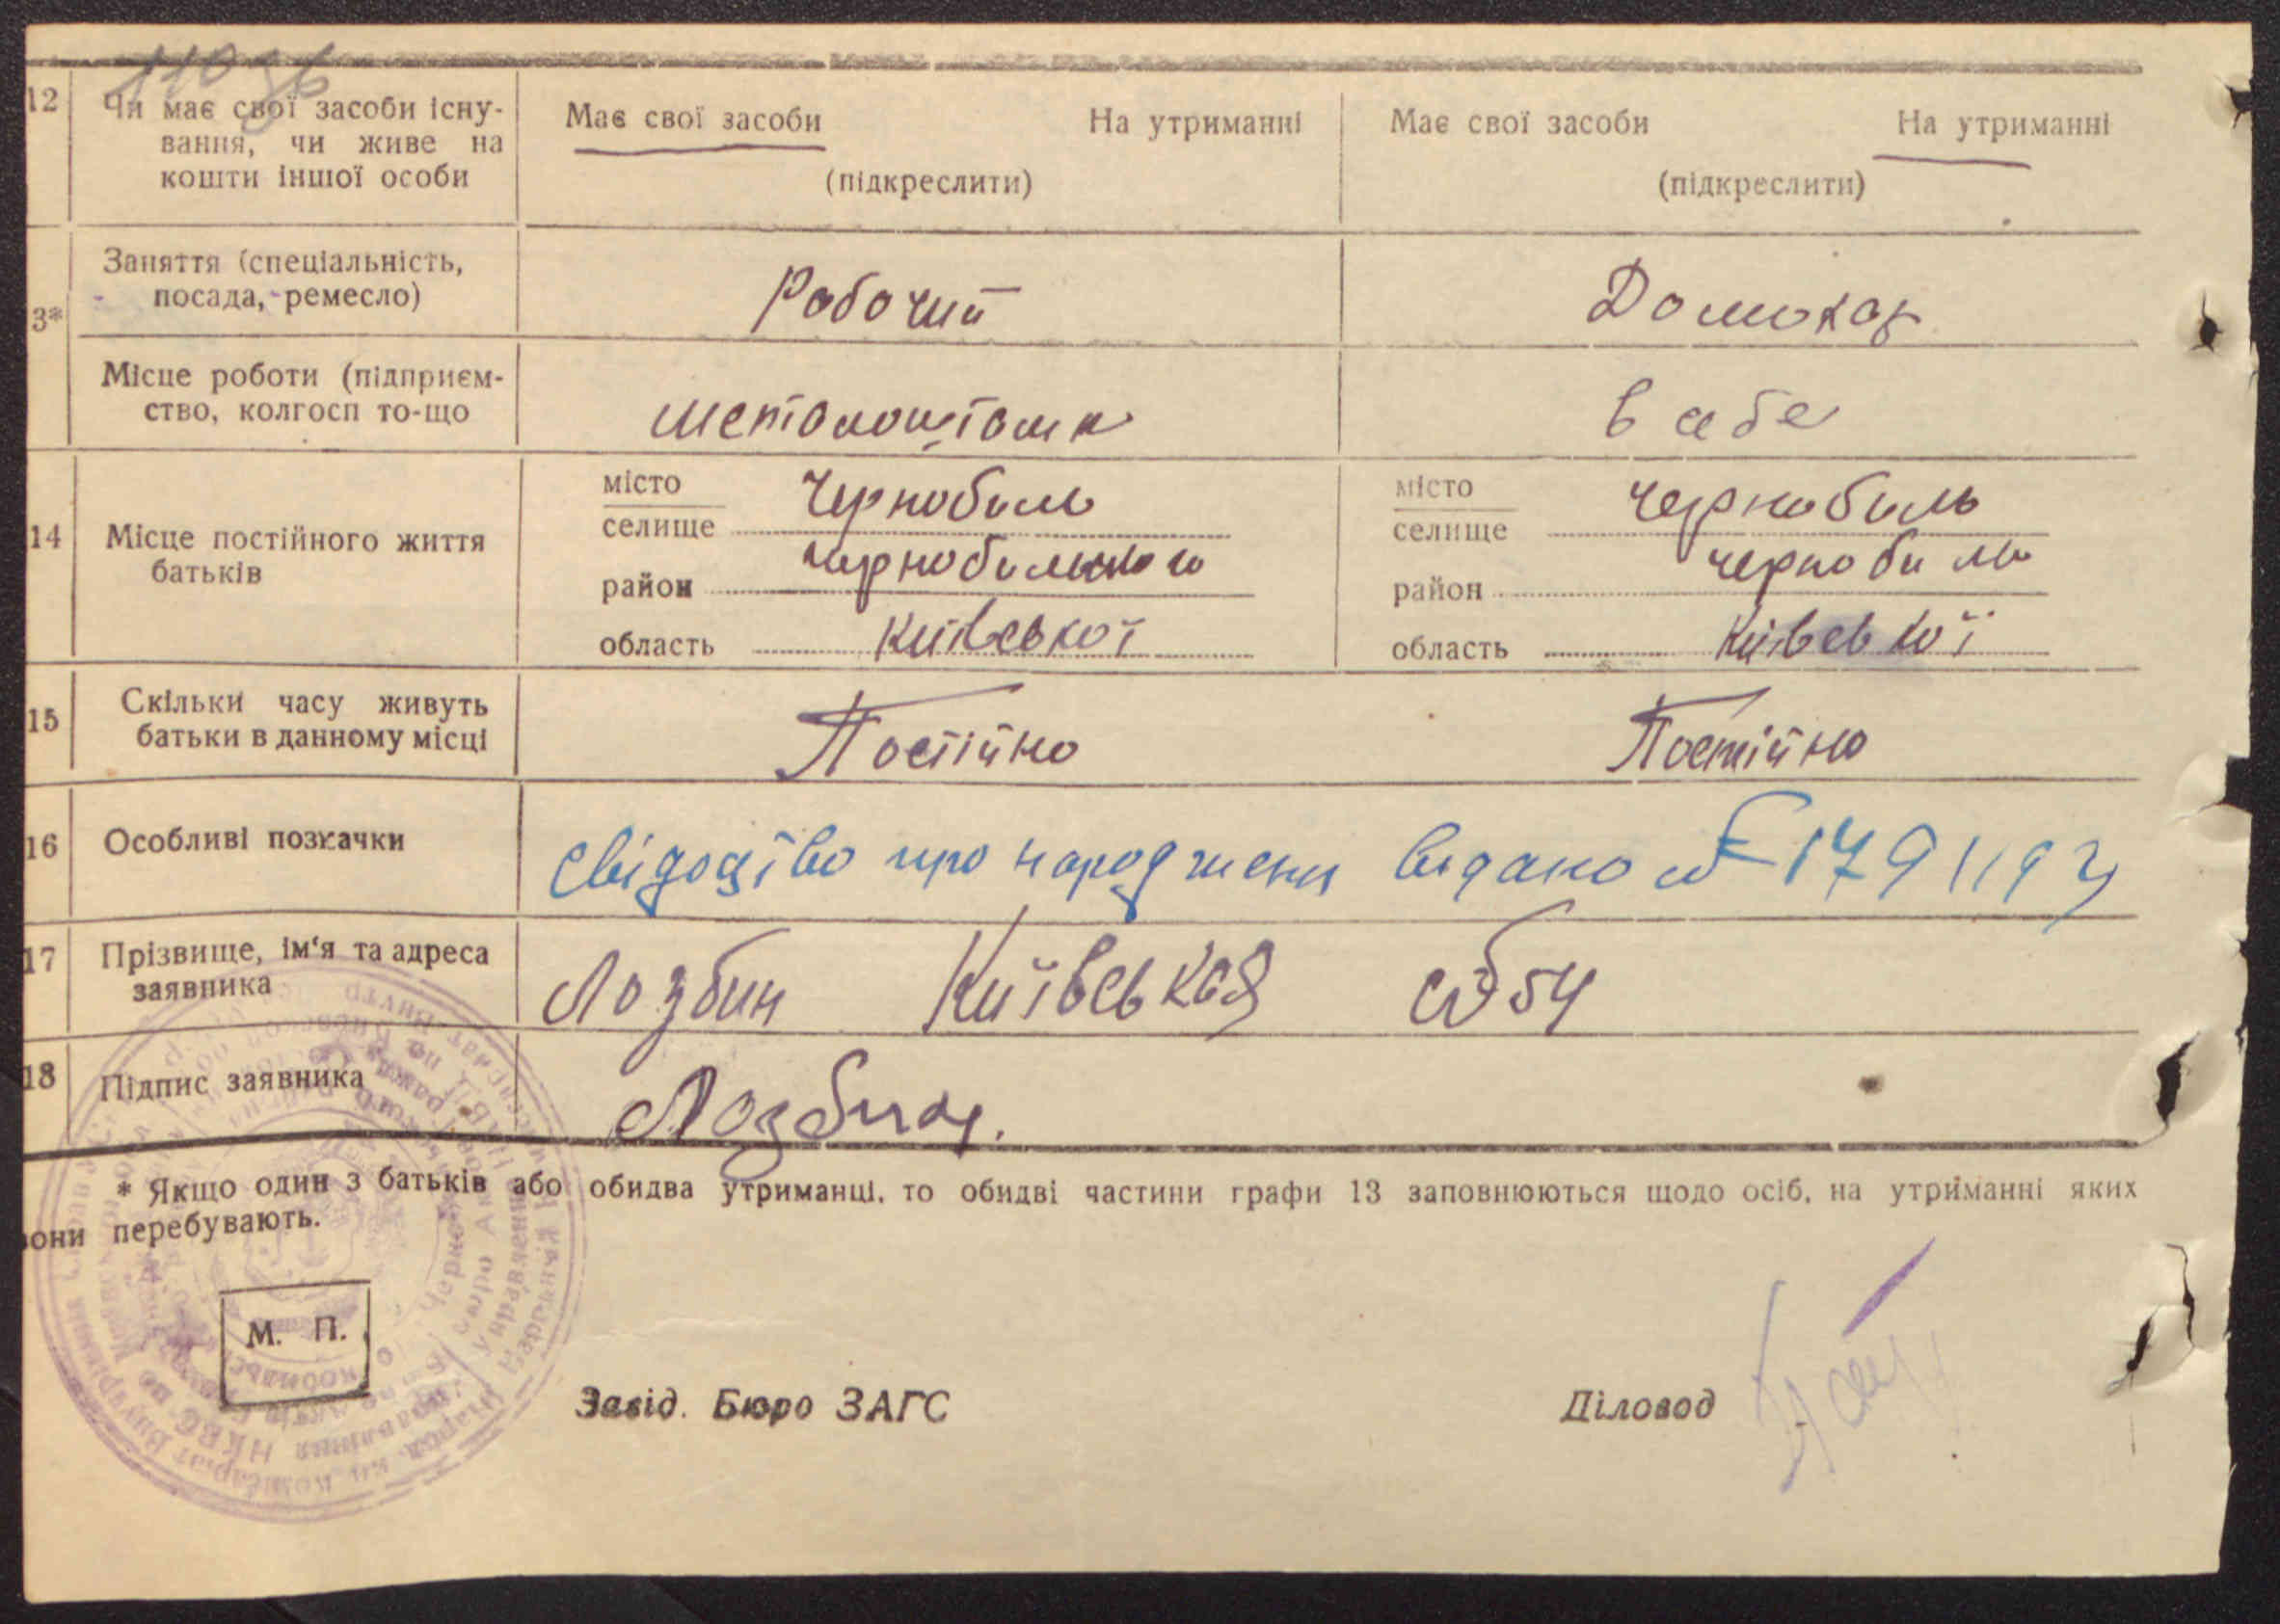 11036
12 Чи має свої засоби існу- Має свої засоби На утриманні Має свої засоби На утриманні
вання, чи живе на
кошти іншої особи (підкреслити) (підкреслити)
3* Заняття (спеціальність,
посада, ремесло) Робочий Домохаз
Місце роботи (підприєм-
ство, колгосп то-що в себе
14 Місце постійного життя
батьків
місто Чернобиль місто Чернобиль
селище селище
район Чернобильського район Чернобиль
область Київської область Київської
15 Скільки часу живуть
батьки в данному місці Постійно Постійно
16 Особливі позначки Свідодтво про народжени видано № 1791192
17 Прізвище, ім'я та адреса
заявника Лозбин Київськая №54
18 Підпис заявника Лозбин
* Якщо один з батьків або обидва утриманці, то обидві частини графи 13 заповнюються щодо осіб, на утриманні яких
вони перебувають.
М. П.
Завід. Бюро ЗАГС Діловод